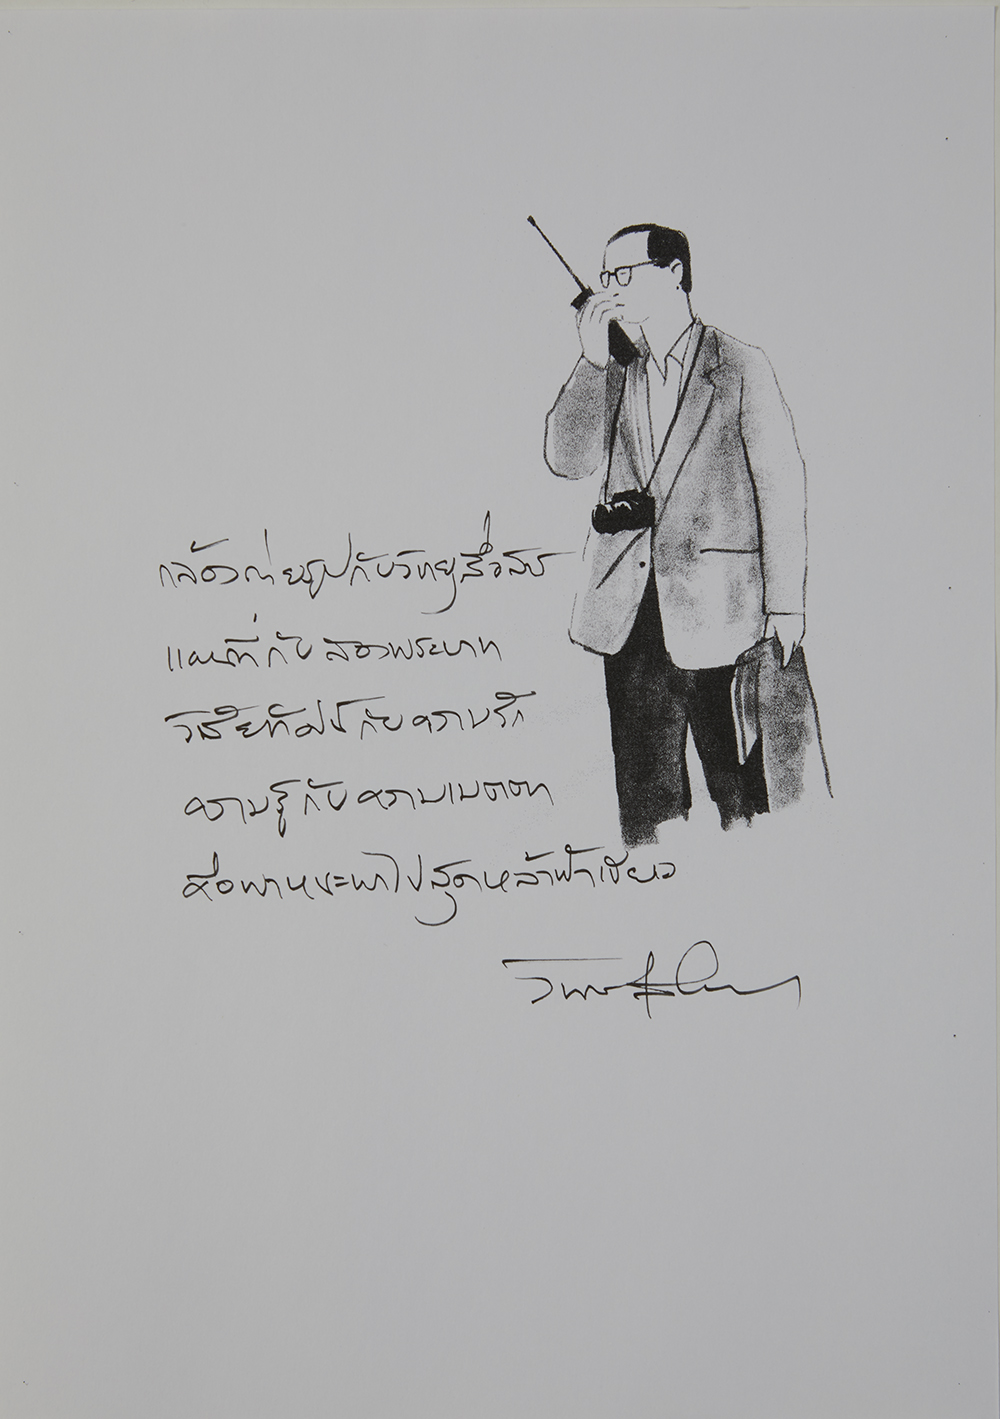 กล้องถ่ายรูปกับวิทยุสื่อสาร
แผนที่กับสองพระบาท
วิสัยทัศน์กับความรัก
ความรู้กับความเมตตา
คือพาหนะพาไปสุดหล้าฟ้าเขียว